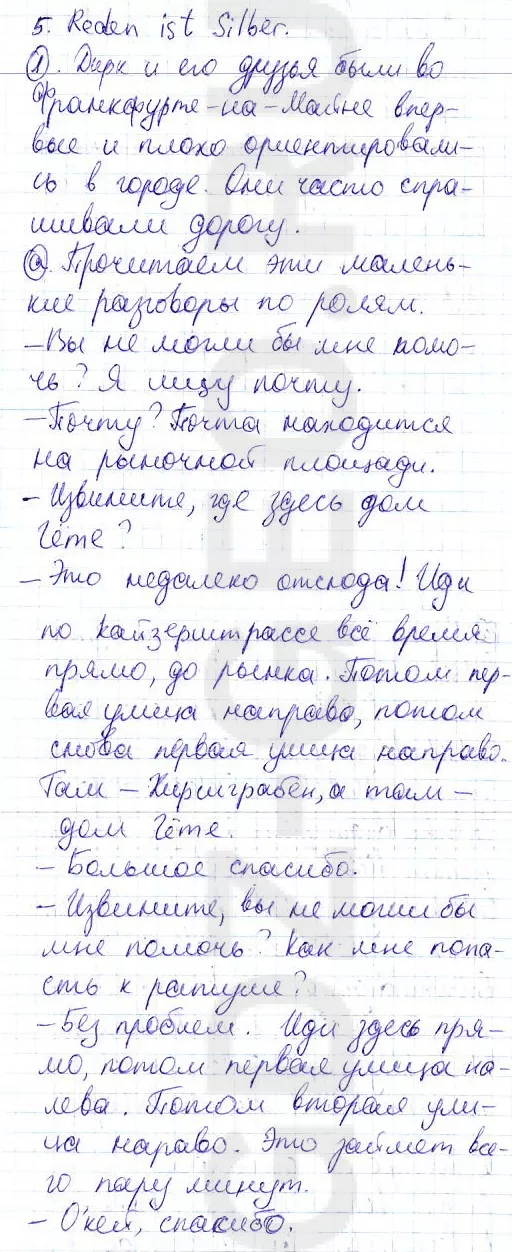 5. Reden ist Silber.
① Дирк и его друзья были во
Франкфурте-на-Майне впер-
вые и плохо ориентировали-
сь в городе. Они часто спра-
шивали дорогу.
ⓐ Прочитаем эти малень-
кие разговоры по ролям.
– Вы не могли бы мне помо-
чь? Я ищу почту.
– Почту? Почта находится
на рыночной площади.
– Извините, где здесь дом
Гёте?
– Это недалеко отсюда! Иди
по Кайзерштрассе всё время
прямо, до рынка. Потом пер-
вая улица направо, потом
снова первая улица направо.
Там – Хиршграбен, а там –
дом Гёте.
– Большое спасибо.
– Извините, вы не могли бы
мне помочь? Как мне попа-
сть к ратуше?
– Без проблем. Иди здесь пря-
мо, потом первая улица на-
лева. Потом вторая ули-
ца нараво. Это займет все-
го пару минут.
– О'кей, спасибо.
GDZ-GEO.RU